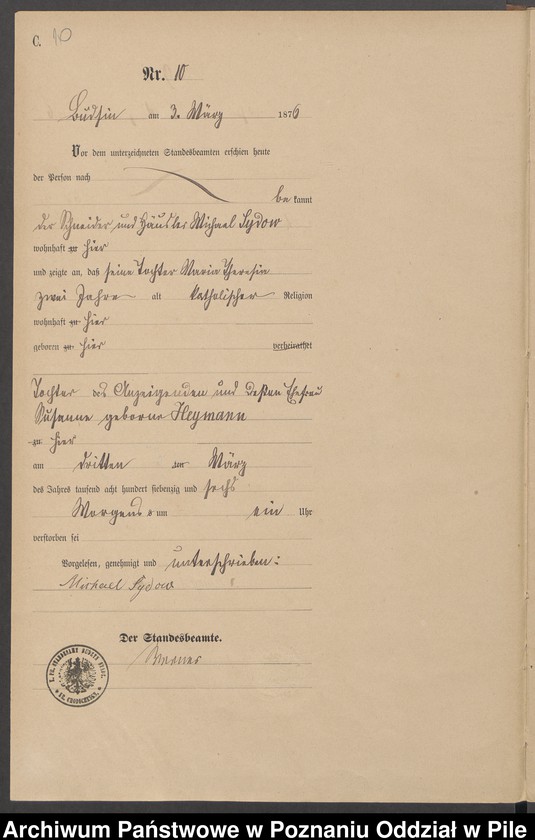 C. 10
Nr. 10
Budsin am 3. März 1876
Vor dem unterzeichneten Standesbeamten erschien heute
der Person nach
bekannt
der Schneider und Häusler Michael Sydow
wohnhaft zu hier
und zeigte an, daß seine Tochter Maria Theresia
zwei Jahre alt katholischer Religion
wohnhaft zu hier
geboren zu hier verheirathet
Tochter des Anzeigenden und dessen Ehefrau
Susanne geborne Heymann
zu hier
am dritten März
des Jahres tausend acht hundert siebenzig und sechs
Morgens um ein Uhr
verstorben sei
Vorgelesen, genehmigt und unterschrieben:
Michael Sydow
Der Standesbeamte.
Werner
Archiwum Państwowe w Poznaniu Oddział w Pile